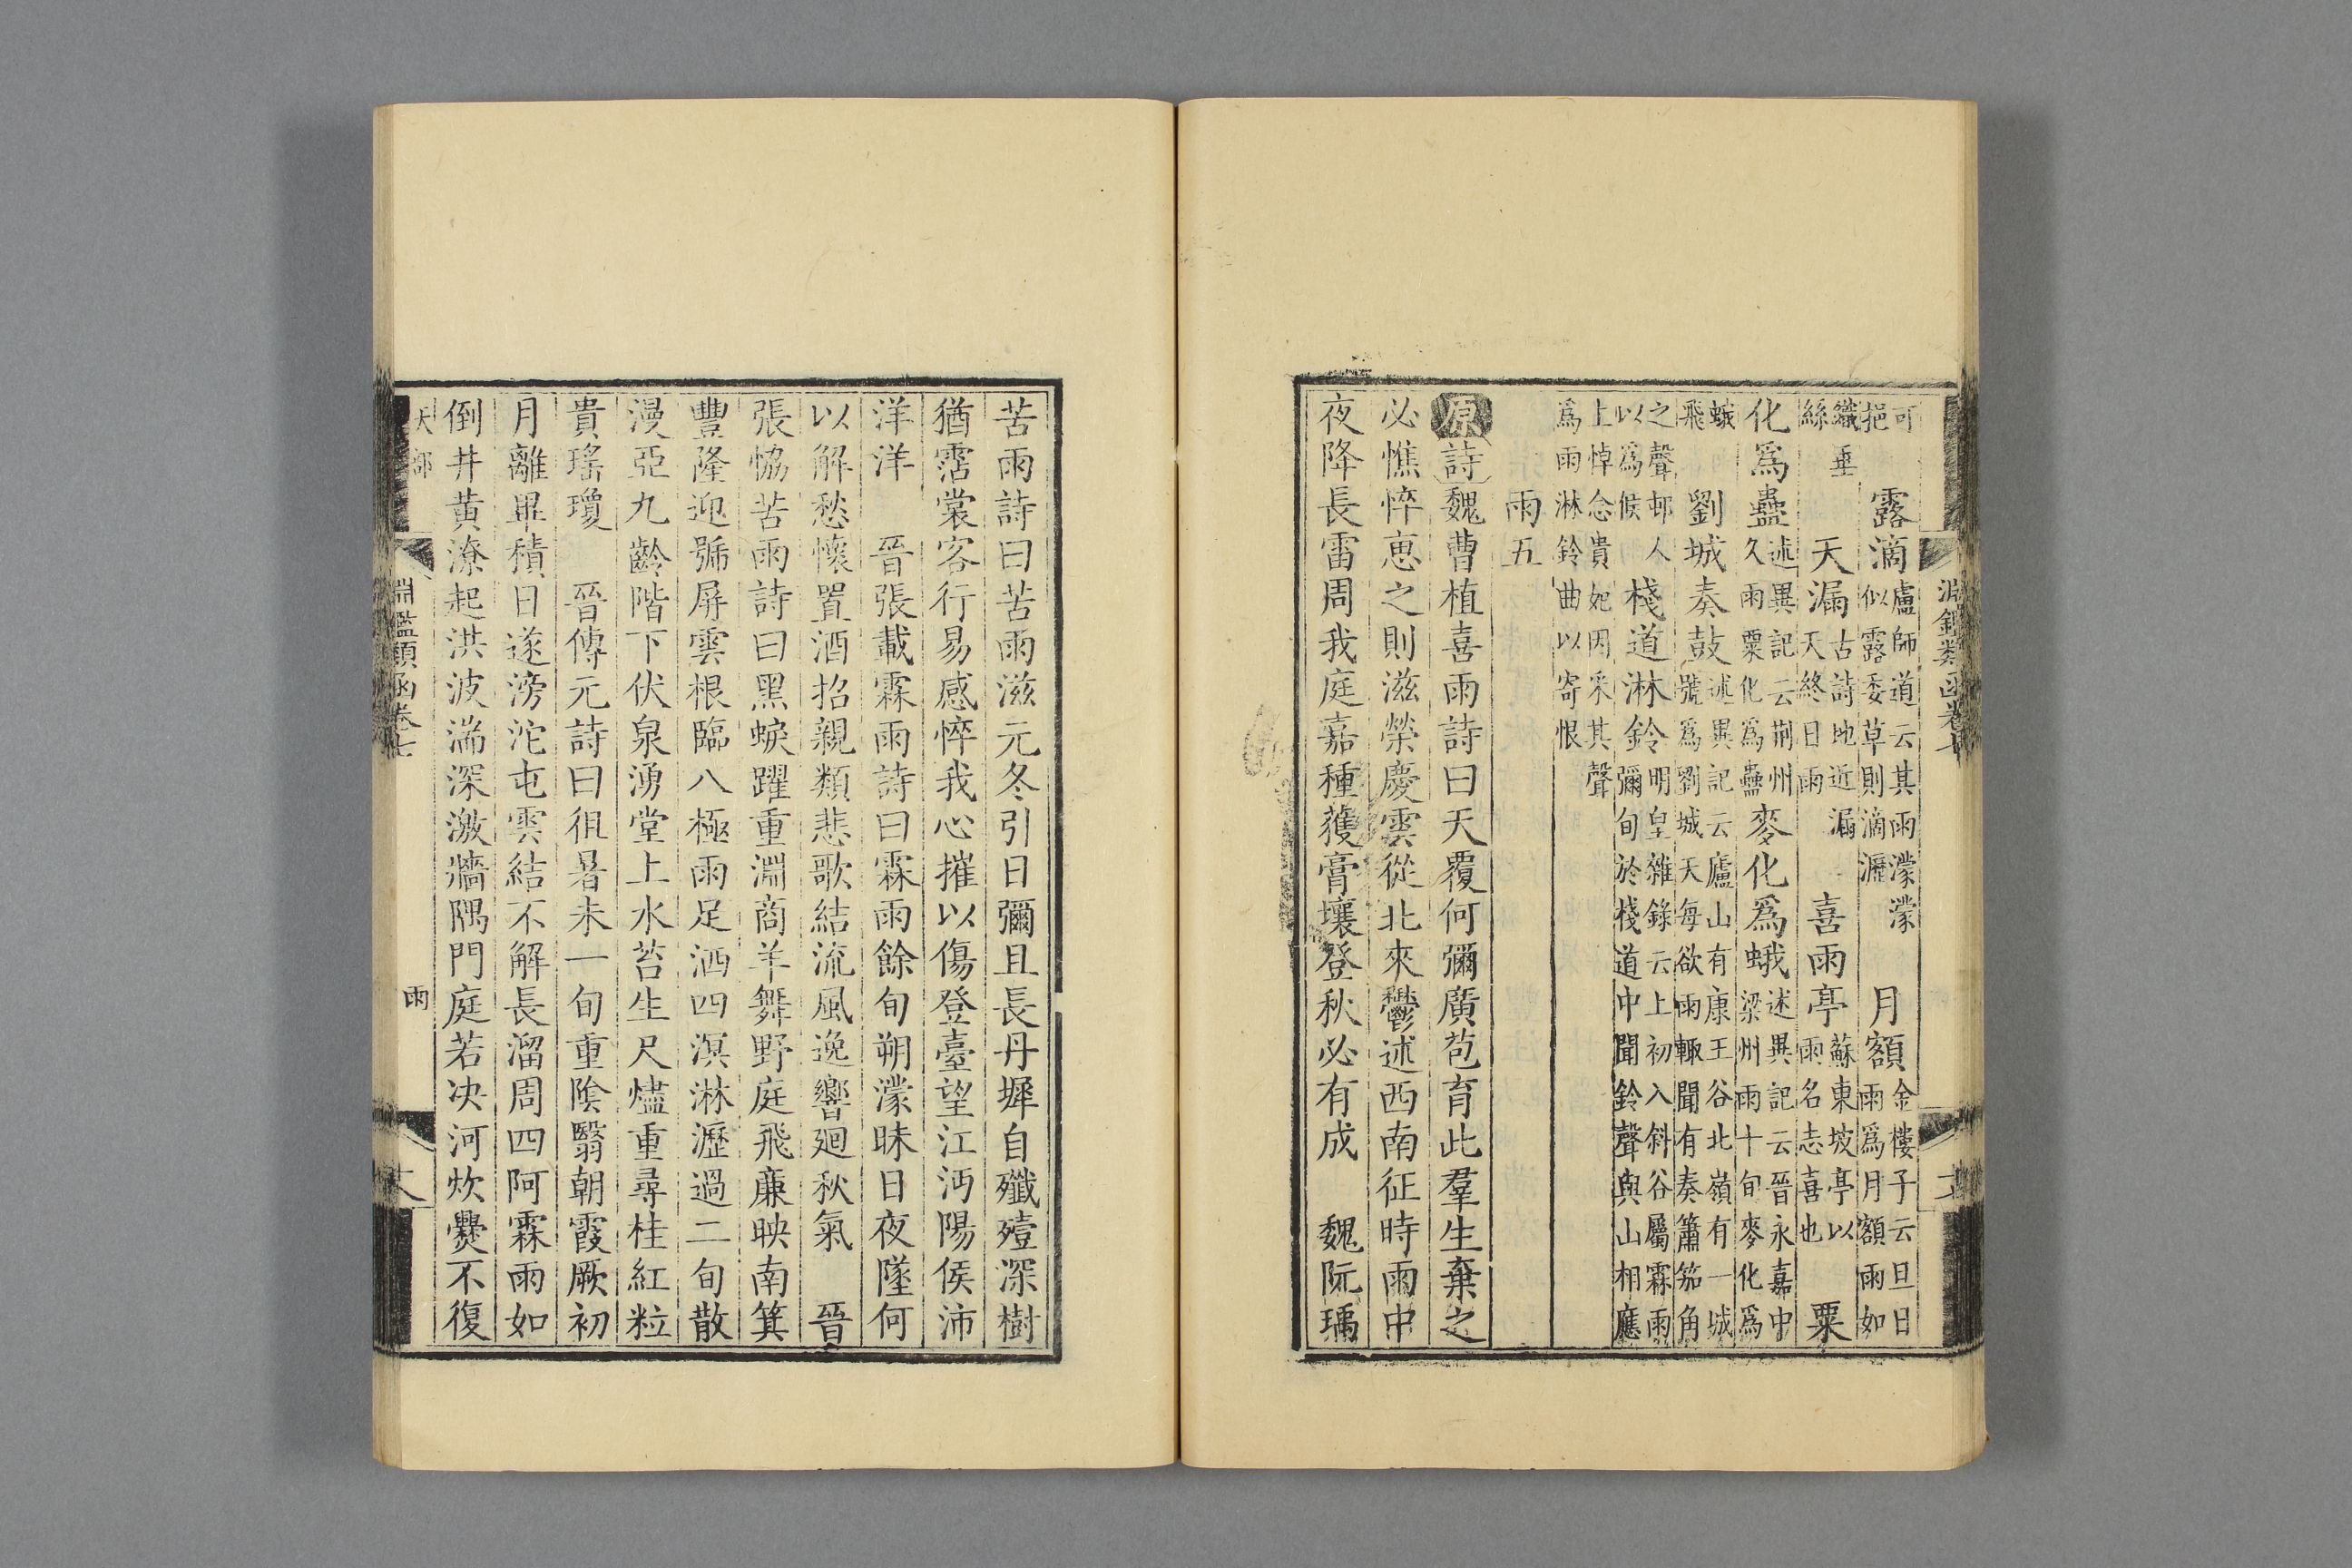 淵鑑類函卷七
可挹　露滴盧師道云其雨濛濛似露委草則滴瀝　月額金樓子云旦日雨爲月額雨如
織垂絲　天漏古詩地近漏天終日雨　喜雨亭蘇東坡亭以雨名志喜也　粟
化爲蠱述異記云荆州久雨粟化爲蠱　麥化爲蛾述異記云晉永嘉中梁州雨十旬麥化爲
蛾飛　劉城奏鼓述異記云廬山有康王谷北嶺有一城號爲劉城天每欲雨輙聞有奏簫笳角
之聲邨人以爲候　棧道淋鈴明皇雜錄云上初入斜谷屬霖雨彌旬於棧道中聞鈴聲與山相應
上悼念貴妃因采其聲爲雨淋鈴曲以寄恨
雨五
原詩魏曹植喜雨詩曰天覆何彌廣苞育此羣生棄之
必憔悴惠之則滋榮慶雲從北來鬱述西南征時雨中
夜降長雷周我庭嘉種獲膏壤登秋必有成　魏阮瑀
苦雨詩曰苦雨滋元冬引日彌且長丹墀自殲殪深樹
猶霑裳客行易感悴我心摧以傷登臺望江沔陽侯沛
洋洋　晉張載霖雨詩曰霖雨餘旬朔濛昧日夜墜何
以解愁懷置酒招親類悲歌結流風逸響廻秋氣　晉
張協苦雨詩曰黑蜧躍重淵商羊舞野庭飛廉映南箕
豐隆迎號屏雲根臨八極雨足洒四溟淋瀝過二旬散
漫亞九齡階下伏泉湧堂上水苔生尺燼重尋桂紅粒
貴瑤瓊　晉傅元詩曰徂暑未一旬重陰翳朝霞厥初
月離畢積日遂滂沱屯雲結不解長溜周四阿霖雨如
倒井黄潦起洪波湍深激牆隅門庭若决河炊爨不復
天部　淵鑑類函卷七　雨